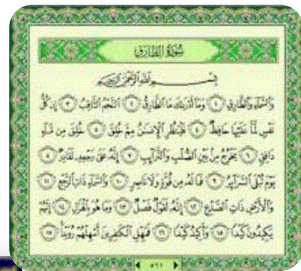 سُورَةُ الطَّارِقِ
بِسْمِ اللَّهِ الرَّحْمَٰنِ الرَّحِيمِ
وَالسَّمَاءِ وَالطَّارِقِ ١ وَمَا أَدْرَاكَ مَا الطَّارِقُ ٢ النَّجْمُ الثَّاقِبُ ٣ إِن كُلُّ
نَفْسٍ لَّمَّا عَلَيْهَا حَافِظٌ ٤ فَلْيَنظُرِ الْإِنسَانُ مِمَّ خُلِقَ ٥ خُلِقَ مِن مَّاءٍ
دَافِقٍ ٦ يَخْرُجُ مِن بَيْنِ الصُّلْبِ وَالتَّرَائِبِ ٧ إِنَّهُ عَلَىٰ رَجْعِهِ لَقَادِرٌ ٨
يَوْمَ تُبْلَى السَّرَائِرُ ٩ فَمَا لَهُ مِن قُوَّةٍ وَلَا نَاصِرٍ ١٠ وَالسَّمَاءِ ذَاتِ الرَّجْعِ ١١
وَالْأَرْضِ ذَاتِ الصَّدْعِ ١٢ إِنَّهُ لَقَوْلٌ فَصْلٌ ١٣ وَمَا هُوَ بِالْهَزْلِ ١٤ إِنَّهُمْ
يَكِيدُونَ كَيْدًا ١٥ وَأَكِيدُ كَيْدًا ١٦ فَمَهِّلِ الْكَافِرِينَ أَمْهِلْهُمْ رُوَيْدًا ١٧
٥٩١